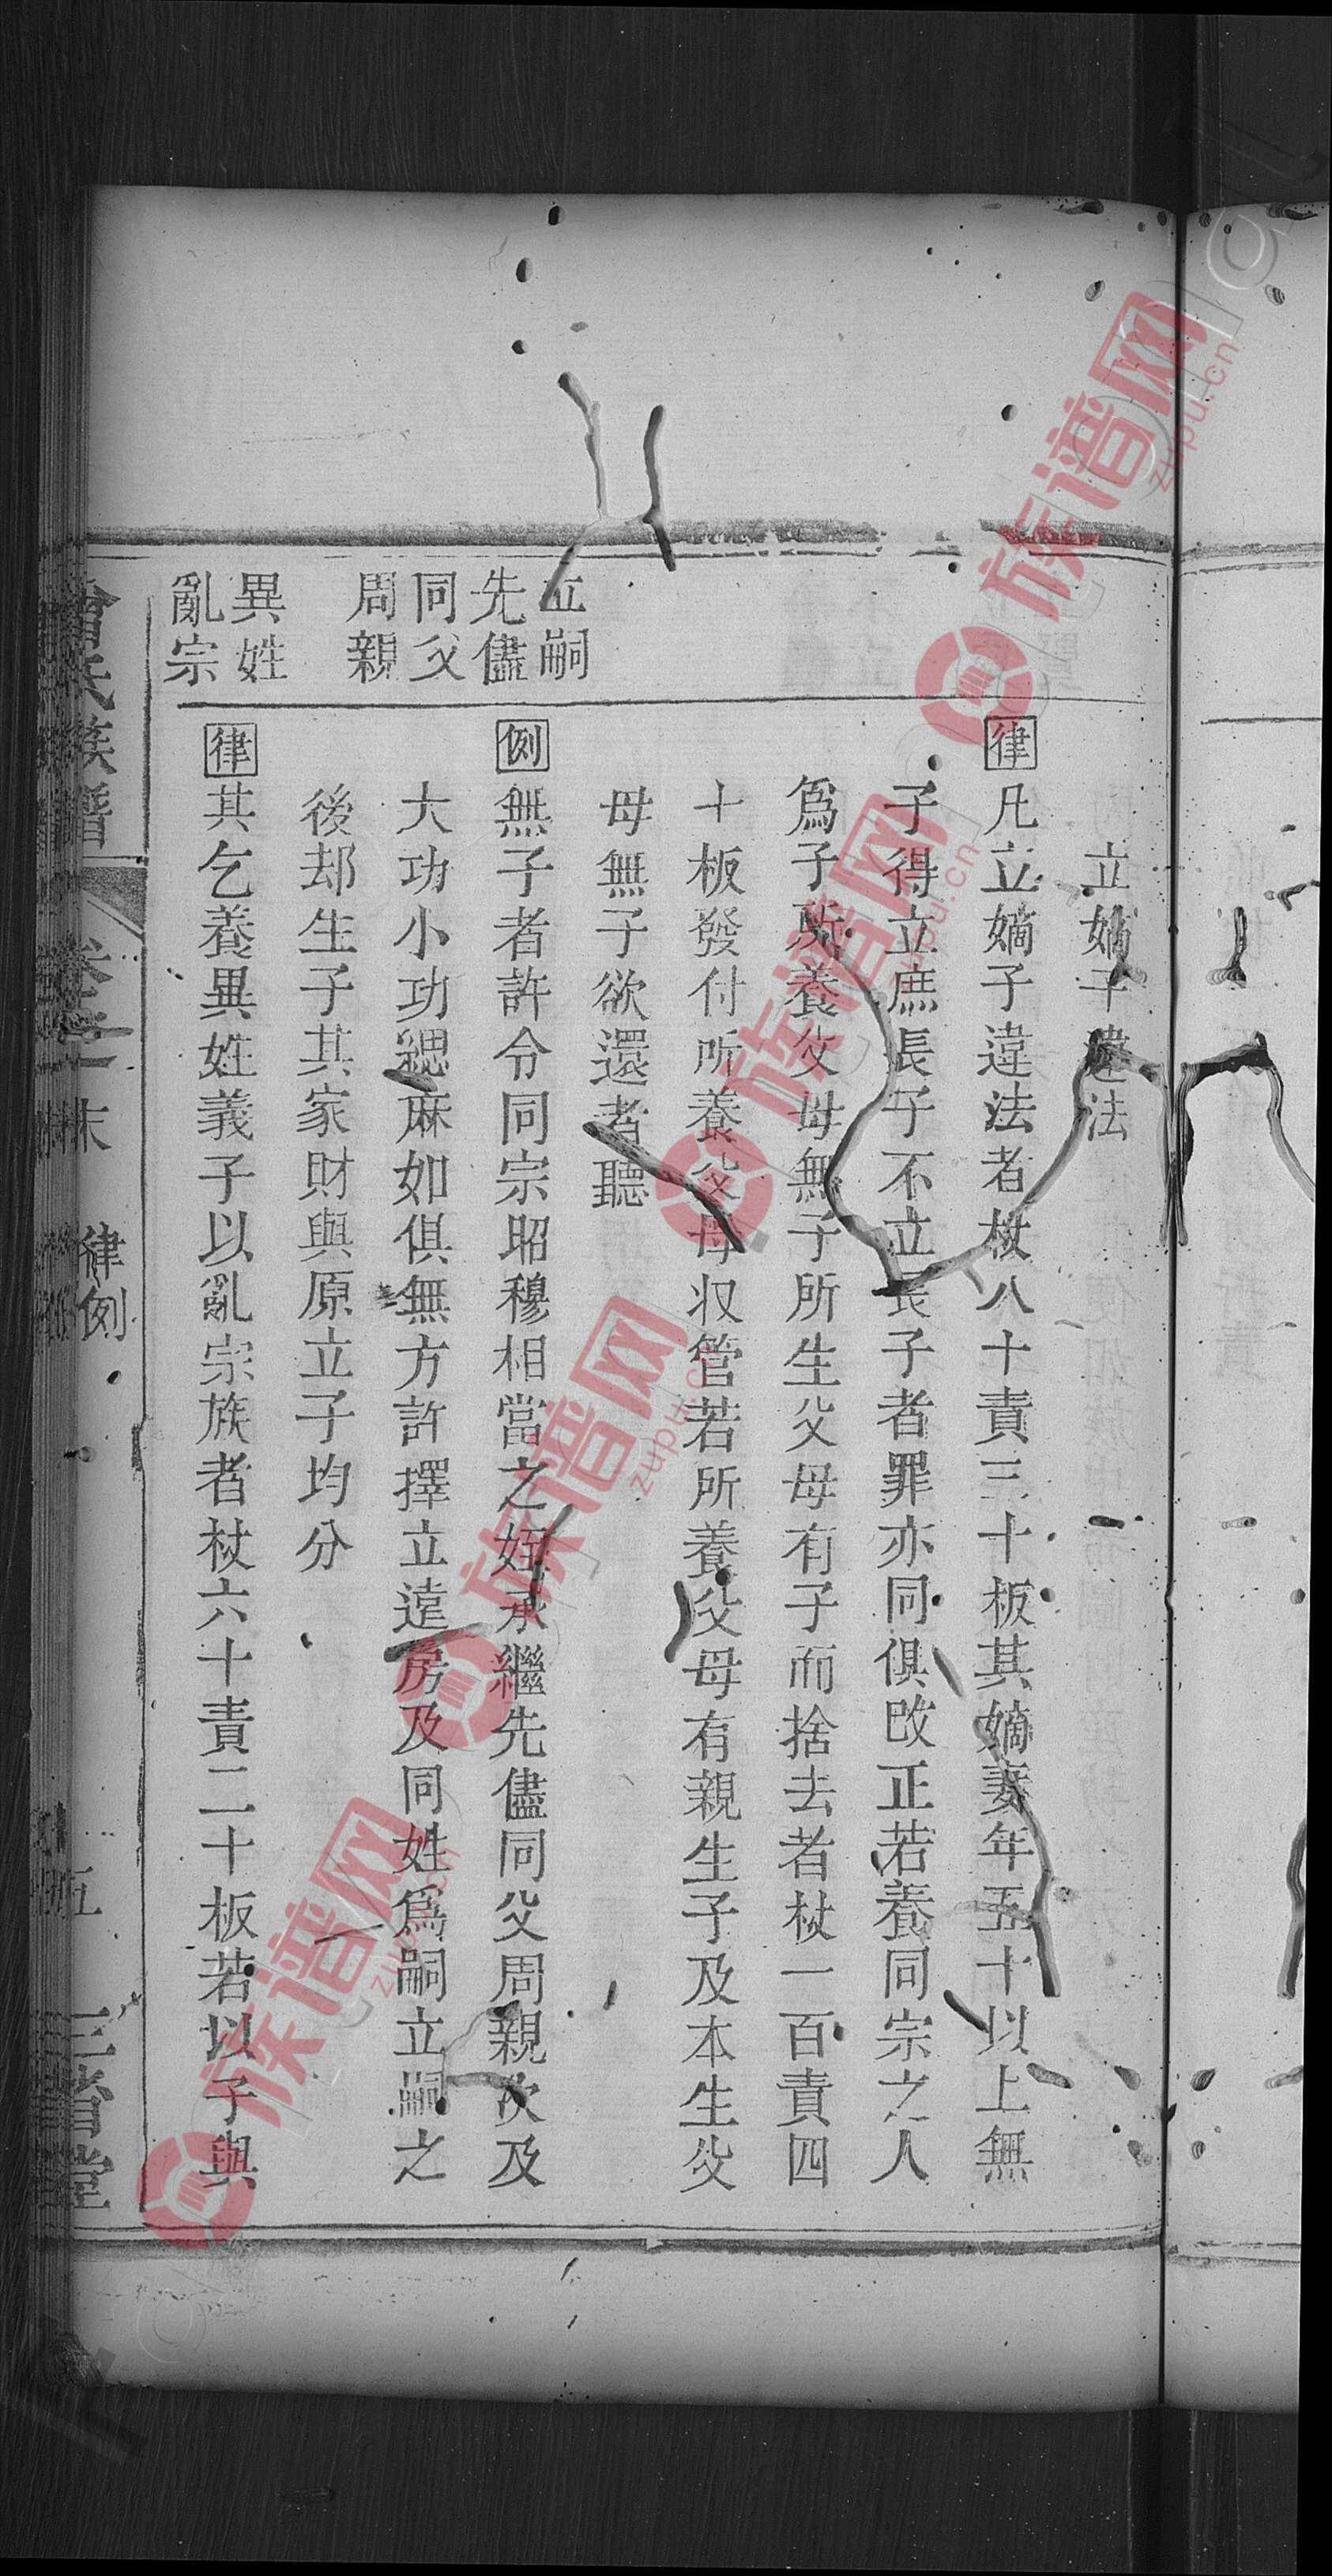 立嫡子違法
律凡立嫡子違法者杖八十責三十板其嫡妻年五十以上無
子得立庶長子不立長子者罪亦同俱改正若養同宗之人
爲子所養父母無子所生父母有子而捨去者杖一百責四
十板發付所養父母收管若所養父母有親生子及本生父
母無子欲還者聽
立嗣
先儘
同父
周親
例無子者許令同宗昭穆相當之姪承繼先儘同父周親次及
大功小功緦麻如俱無方許擇立遠房及同姓爲嗣立嗣之
後却生子其家財與原立子均分
異姓
亂宗
律其乞養異姓義子以亂宗族者杖六十責二十板若以子與
氏族譜
卷之一末
律例
五
三省堂
族谱网
zupu.cn
族谱网
zupu.cn
族谱网
zupu.cn
族谱网
zupu.cn